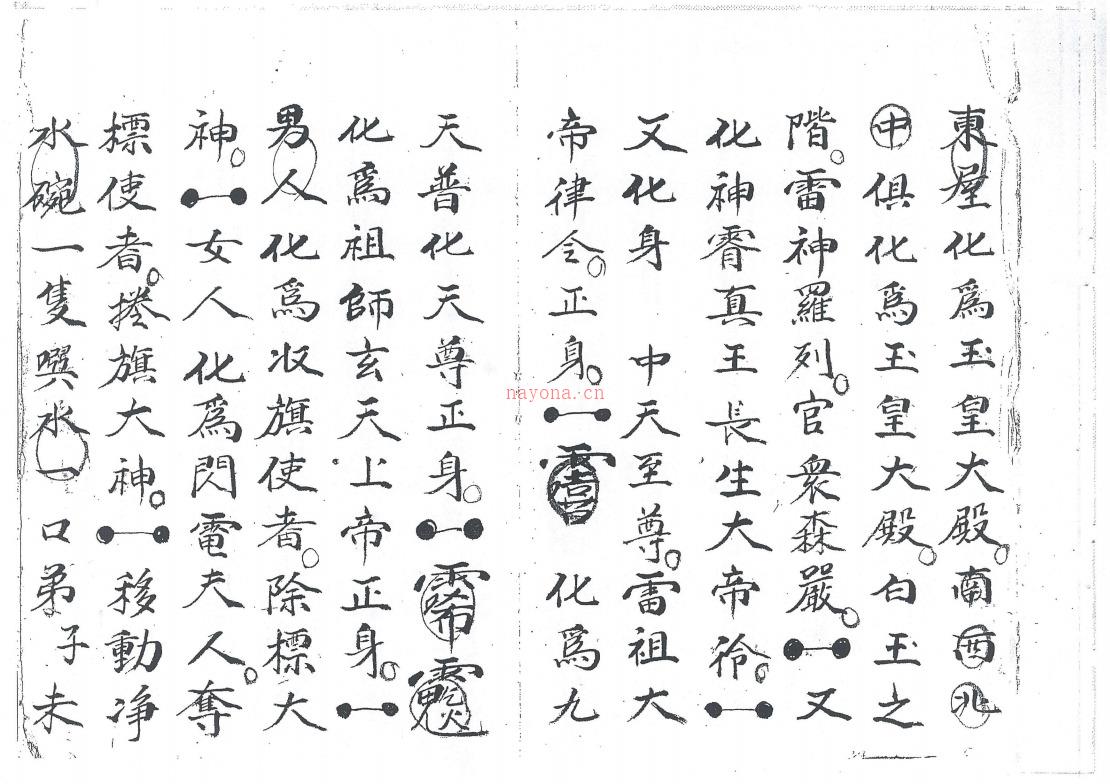 東屋化爲玉皇大殿。南西北
中俱化爲玉皇大殿。白玉之
階。雷神羅列。官衆森嚴。又
化神霄真王長生大帝徐。
又化身 中天至尊。雷祖大
帝律令。正身。 化爲九
天普化天尊正身。
化爲祖師玄天上帝正身。
男人化爲収旗使者。除標大
神。女人化爲閃電夫人。奪
標使者。捲旗大神。移動净
水碗一隻噀水一口弟子未
nayona.cn